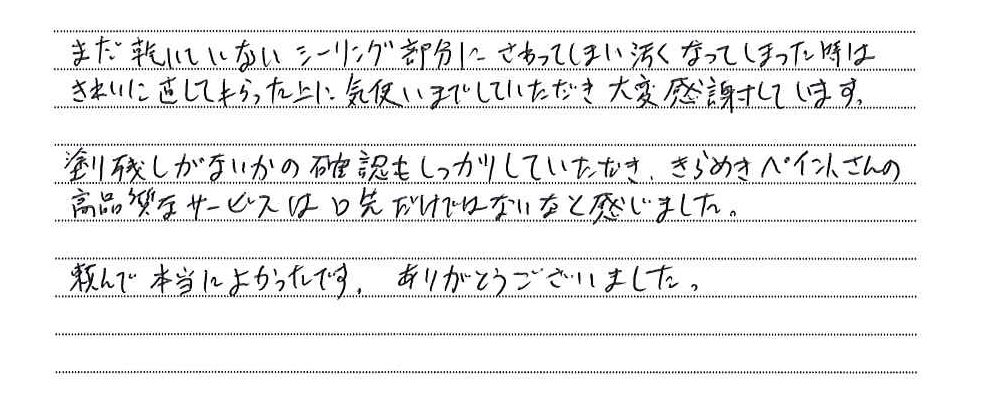 まだ乾いていないシーリング部分にさわってしまい汚くなってしまった時は
きれいに直してもらった上に気使いまでしていただき大変感謝しています。
塗り残しがないかの確認もしっかりしていただき、きらめきペイントさんの
高品質なサービスは口先だけではないなと感じました。
頼んで本当によかったです。ありがとうございました。